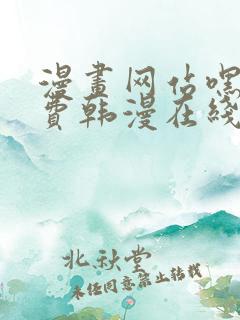 漫畫网站嘿
費韩漫在线
北秋堂
未经同意禁止转载